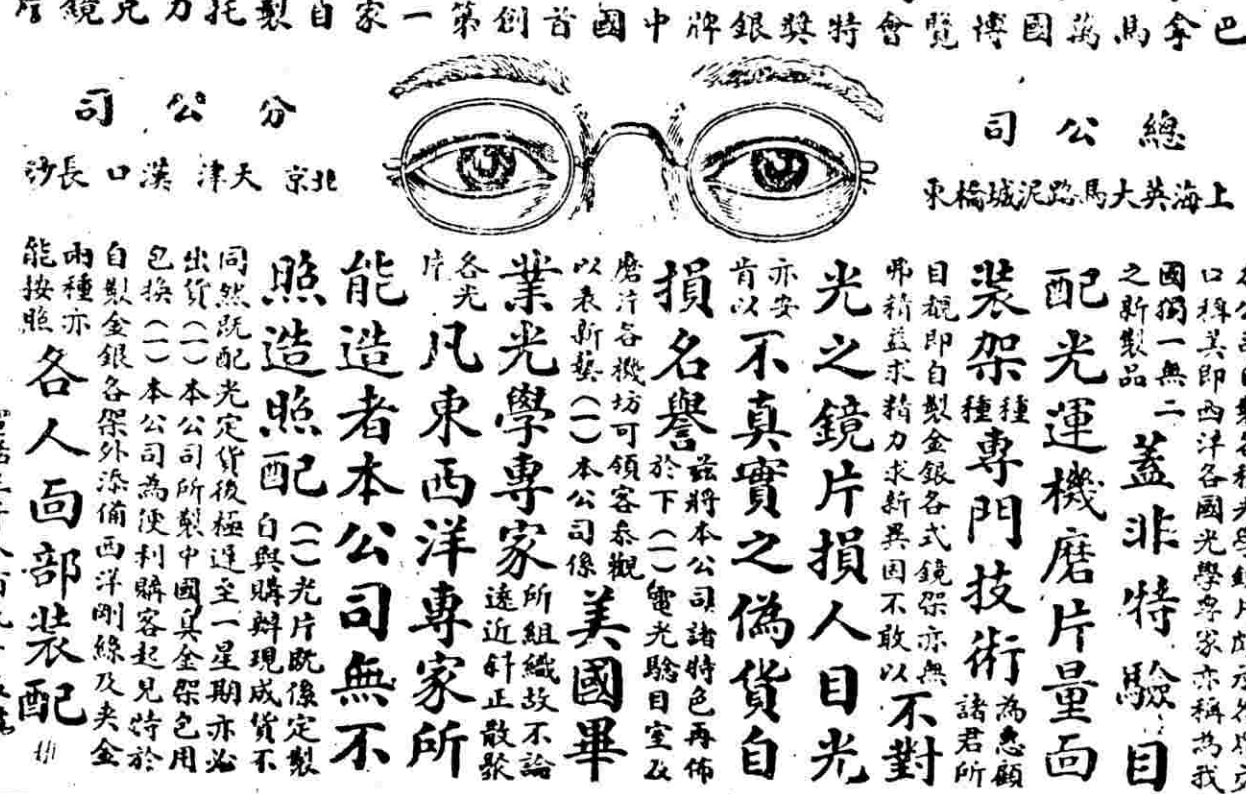 巴拿馬萬國博覽會特獎銀牌中國首創第一家自製托力克鏡片
總公司
上海英大馬路泥城橋東
分公司
北京 天津 漢口 長沙
口稱美即西洋各國光學專家亦稱為我
國獨一無二
之新製品
蓋非特驗目
配光運機磨片量面
裝架種種專門技術為惠顧
諸君所
目觀即自製金銀各式鏡架亦無
弗精益求精力求新異因不敢以不對
光之鏡片損人目光
亦安
肯以
不真實之偽貨自
損名譽茲將本公司諸特色再佈
於下(一)電光驗目室及
磨片各機坊可領客參觀
以表新藝(一)本公司係美國畢
業光學專家所組織故不論
遠近斜正散發
各光
片
凡東西洋專家所
能造者本公司無不
照造照配(一)光片既係定製
自與購辦現成貨不
同然既配光定貨後極遲至一星期亦必
出貨(一)本公司所製中國真金架包用
包換(一)本公司為便利購客起見特於
自製金銀各架外添備西洋剛絲及夾金
兩種亦
能按照
各人面部裝配